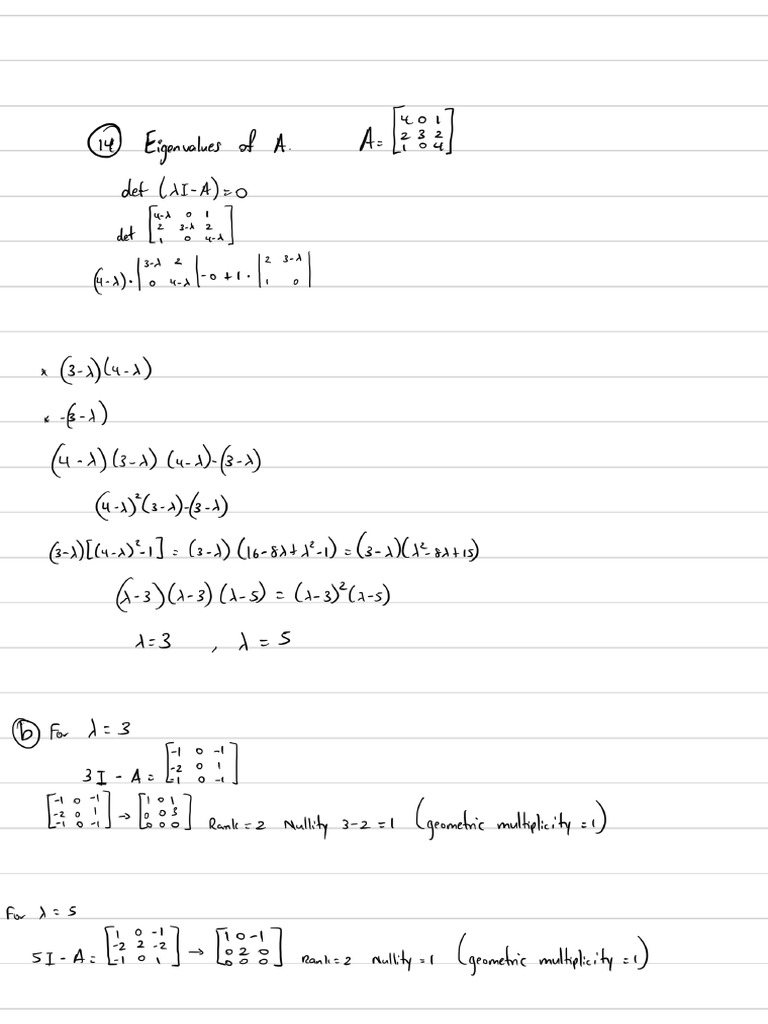 14 Eigenvalues of A. A = [4 0 1; 2 3 2; 1 0 4]
def (λI-A)=0
def [4-λ 0 1; 2 3-λ 2; 1 0 4-λ]
(4-λ)·|3-λ 2; 0 4-λ| -0+1·|2 3-λ; 1 0|
* (3-λ)(4-λ)
* -(3-λ)
(4-λ)(3-λ)(4-λ)-(3-λ)
(4-λ)²(3-λ)-(3-λ)
(3-λ)[(4-λ)²-1] = (3-λ)(16-8λ+λ²-1) = (3-λ)(λ²-8λ+15)
(λ-3)(λ-3)(λ-5) = (λ-3)²(λ-5)
λ=3 , λ=5
b For λ=3
3I-A = [-1 0 -1; -2 0 1; -1 0 -1]
[-1 0 -1; -2 0 1; -1 0 -1] → [1 0 1; 0 0 3; 0 0 0] Rank=2 Nullity 3-2=1 (geometric multiplicity=1)
For λ=5
5I-A = [1 0 -1; -2 2 -2; -1 0 1] → [1 0 -1; 0 2 0; 0 0 0] Rank=2 Nullity=1 (geometric multiplicity=1)